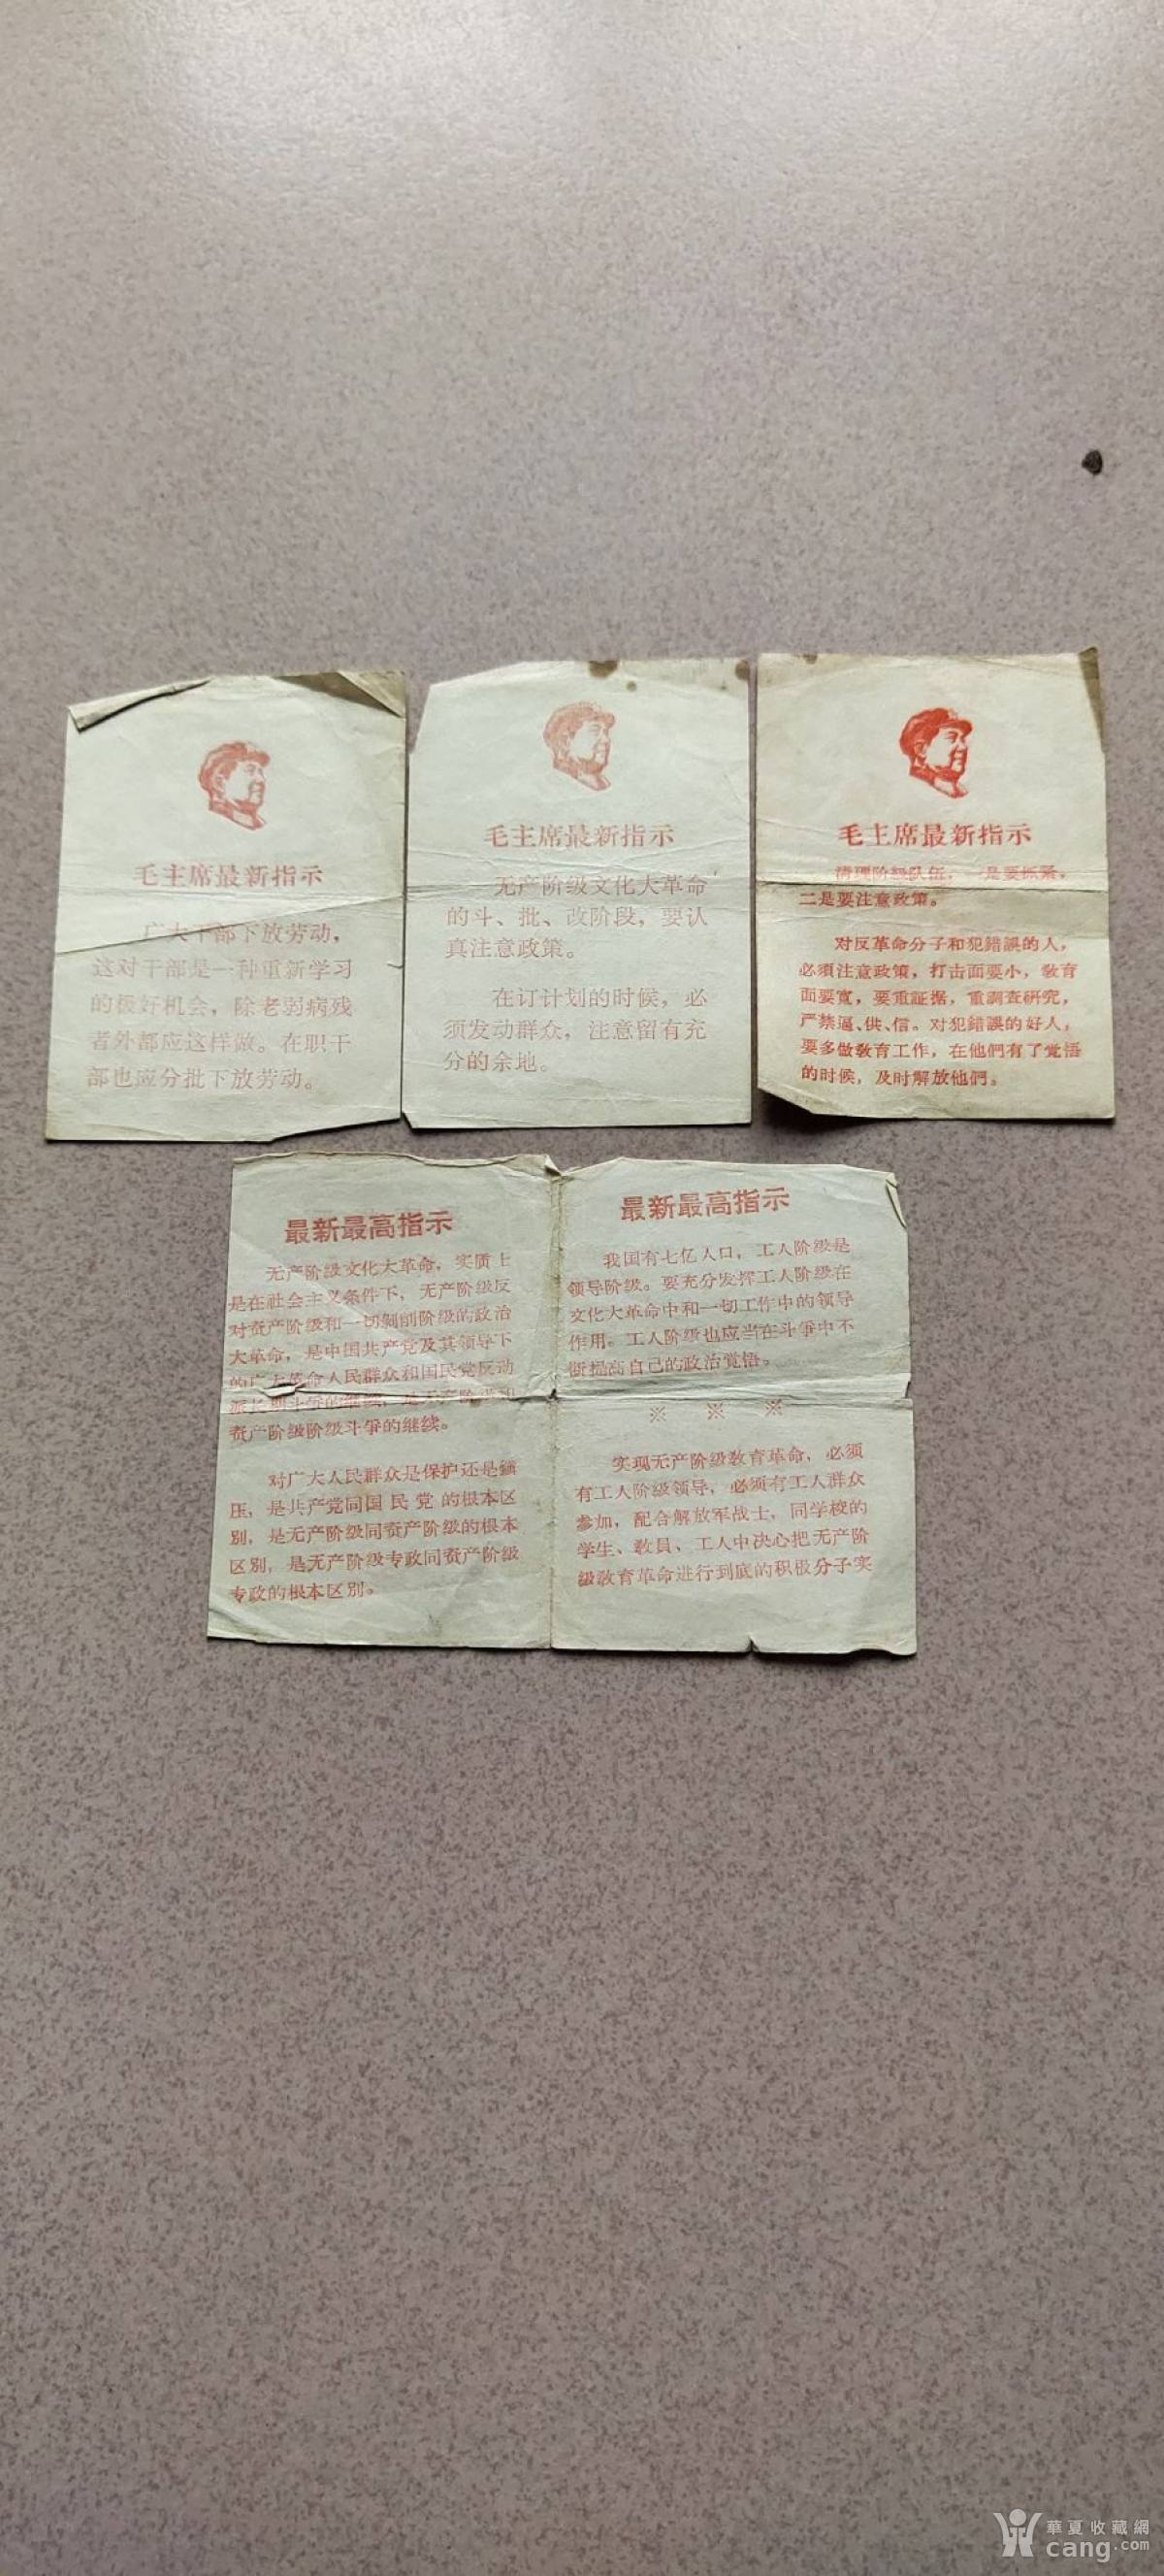 毛主席最新指示
广大干部下放劳动，
这对干部是一种重新学习
的极好机会，除老弱病残
者外都应这样做。在职干
部也应分批下放劳动。
毛主席最新指示
无产阶级文化大革命
的斗、批、改阶段，要认
真注意政策。
在订计划的时候，必
须发动群众，注意留有充
分的余地。
毛主席最新指示
清理阶级队伍，一是要抓紧，
二是要注意政策。
对反革命分子和犯錯誤的人，
必須注意政策，打击面要小，敎育
面要寬，要重証据，重調查研究，
严禁逼、供、信。对犯錯誤的好人，
要多做敎育工作，在他們有了觉悟
的时候，及时解放他們。
最新最高指示
无产阶级文化大革命，实质上
是在社会主义条件下，无产阶级反
对资产阶级和一切剝削阶级的政治
大革命，是中国共产党及其领导下
的广大革命人民群众和国民党反动
派长期斗爭的继续，是无产阶级和
资产阶级阶级斗爭的继续。
对广大人民群众是保护还是镇
压，是共产党同国民党的根本区
别，是无产阶级同资产阶级的根本
区别，是无产阶级专政同资产阶级
专政的根本区别。
最新最高指示
我国有七亿人口，工人阶级是
领导阶级。要充分发挥工人阶级在
文化大革命中和一切工作中的领导
作用。工人阶级也应当在斗爭中不
断提高自己的政治觉悟。
※ ※ ※
实现无产阶级敎育革命，必须
有工人阶级领导，必须有工人群众
参加，配合解放军战士，同学校的
学生、敎員、工人中决心把无产阶
级敎育革命进行到底的积极分子实
華夏收藏網
cang.com